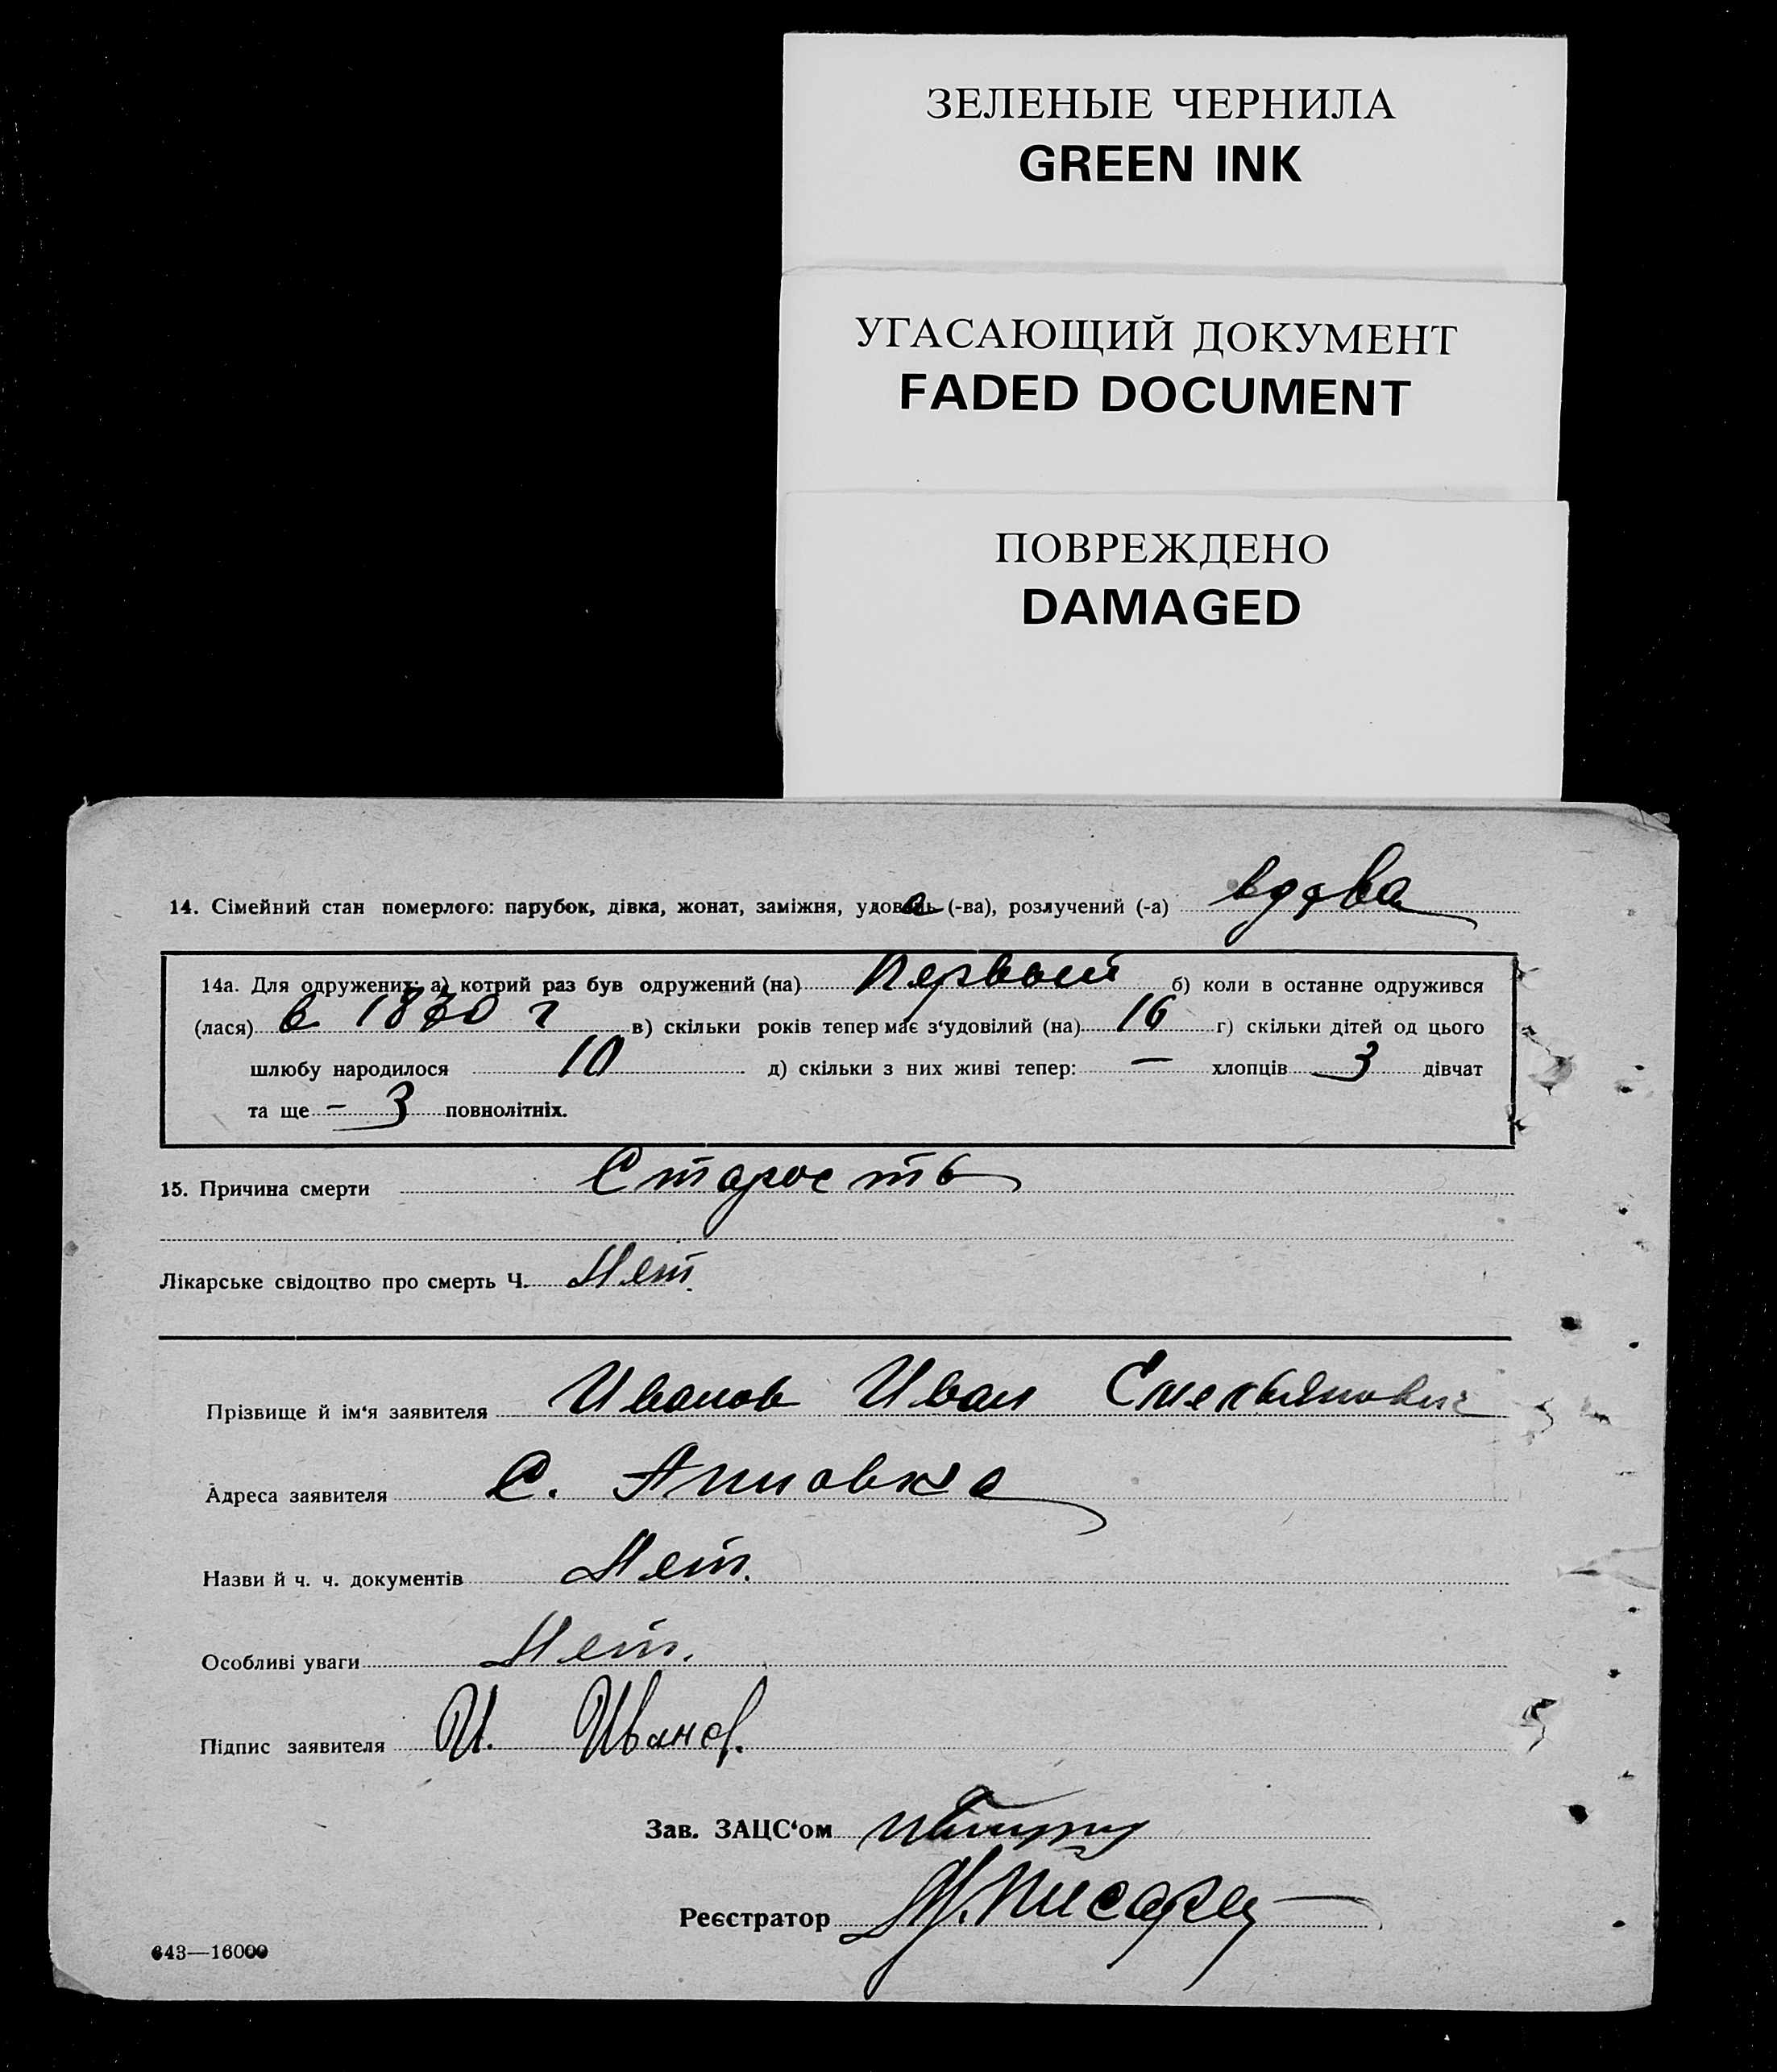 ЗЕЛЕНЫЕ ЧЕРНИЛА
GREEN INK
УГАСАЮЩИЙ ДОКУМЕНТ
FADED DOCUMENT
ПОВРЕЖДЕНО
DAMAGED
14. Сімейний стан померлого: парубок, дівка, жонат, заміжня, удовець (-ва), розлучений (-а) вдова
14а. Для одружених: а) котрий раз був одружений (на) Первый б) коли в останне одружився
(лася) в 1870 г в) скільки років тепер має з‘удовілий (на) 16 г) скільки дітей од цього
шлюбу народилося 10 д) скільки з них живі тепер: — хлопців 3 дівчат
та ще – 3 повнолітніх.
15. Причина смерти Старость
Лікарське свідоцтво про смерть Ч. Нет.
Прізвище й ім‘я заявителя Иванов Иван Емельянович
Адреса заявителя С. Анновка
Назви й ч. ч. документів Нет.
Особливі уваги Нет.
Підпис заявителя И. Иванов.
Зав. ЗАЦС‘ом
Реєстратор
643—16000